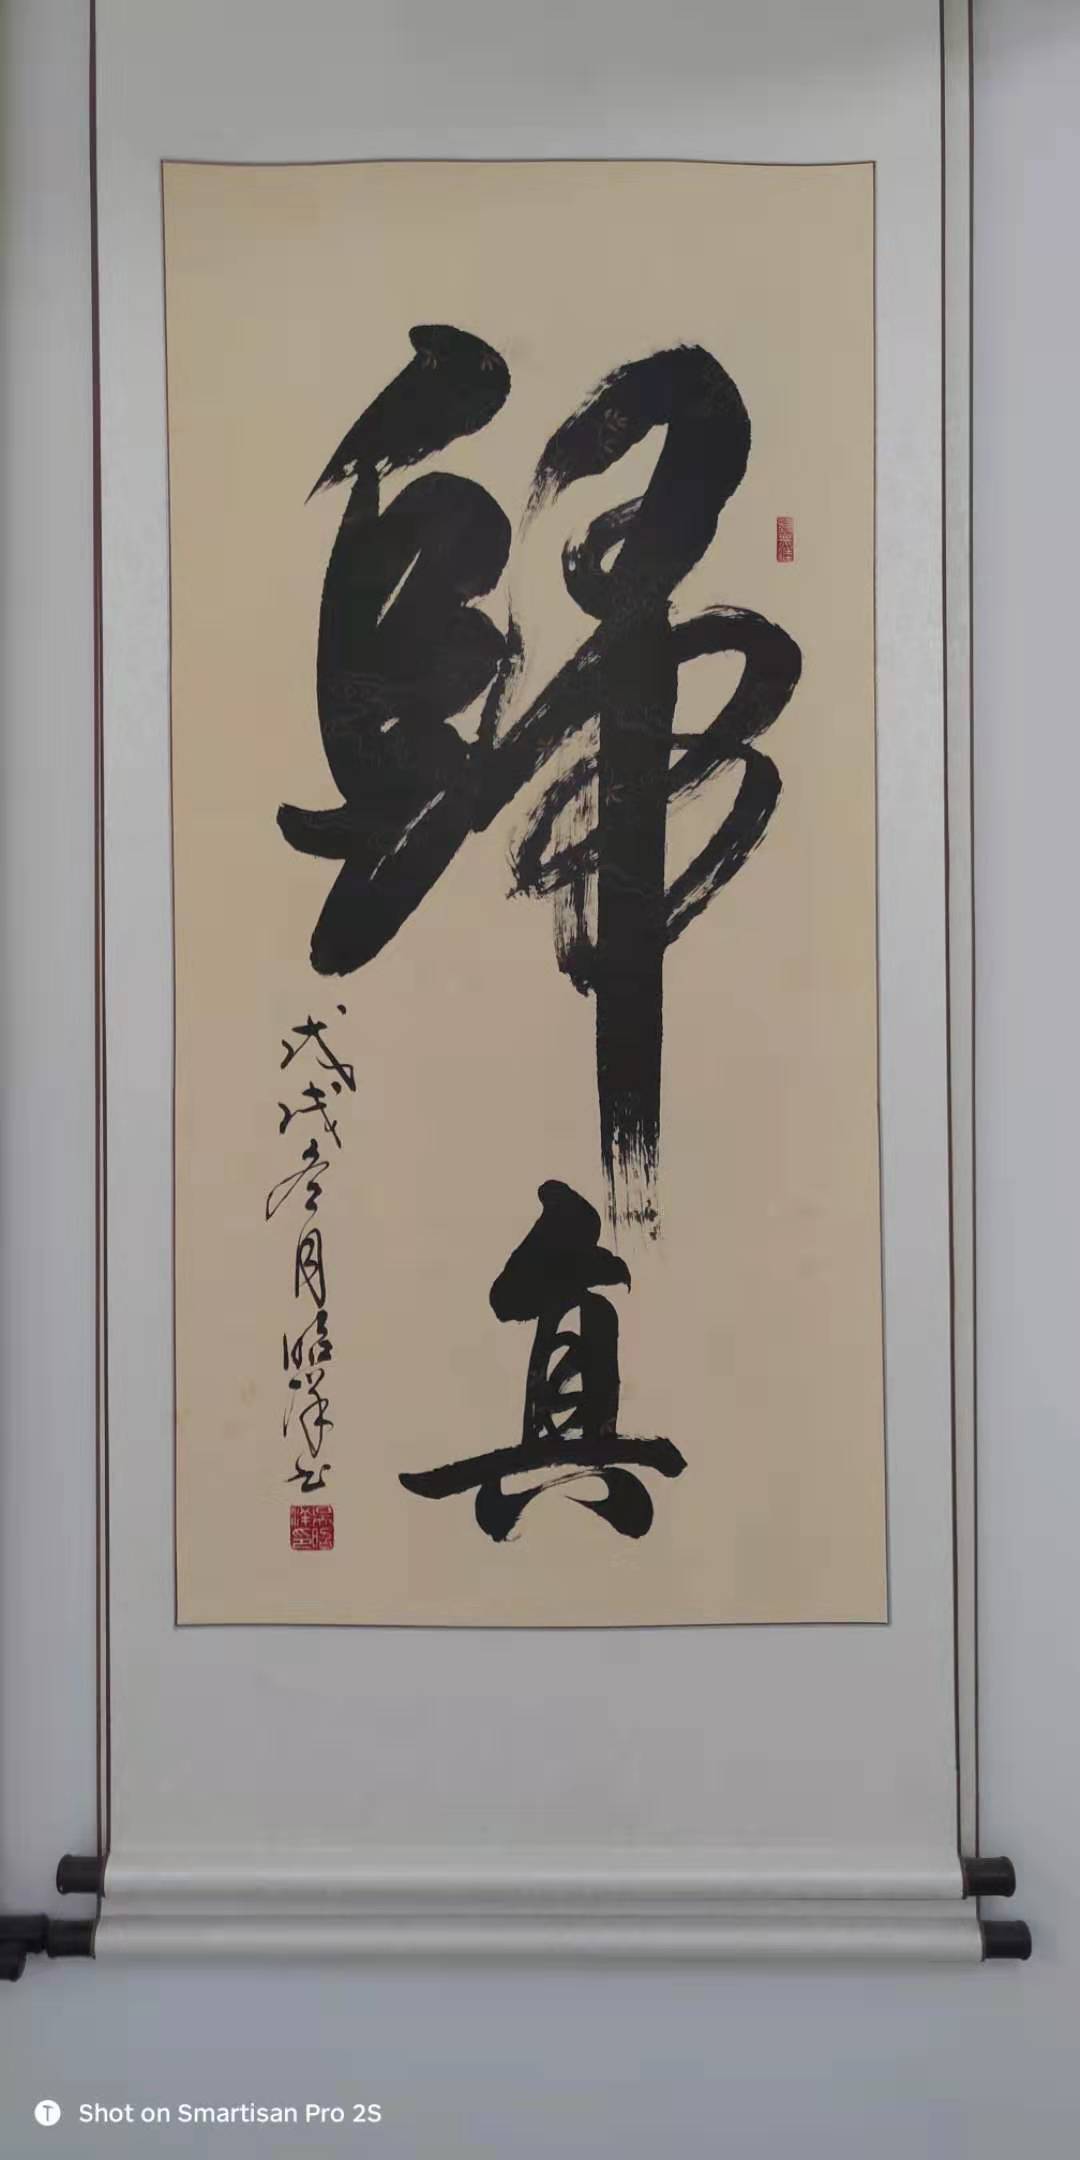 歸真
戊戌冬月昭洋书
Shot on Smartisan Pro 2S